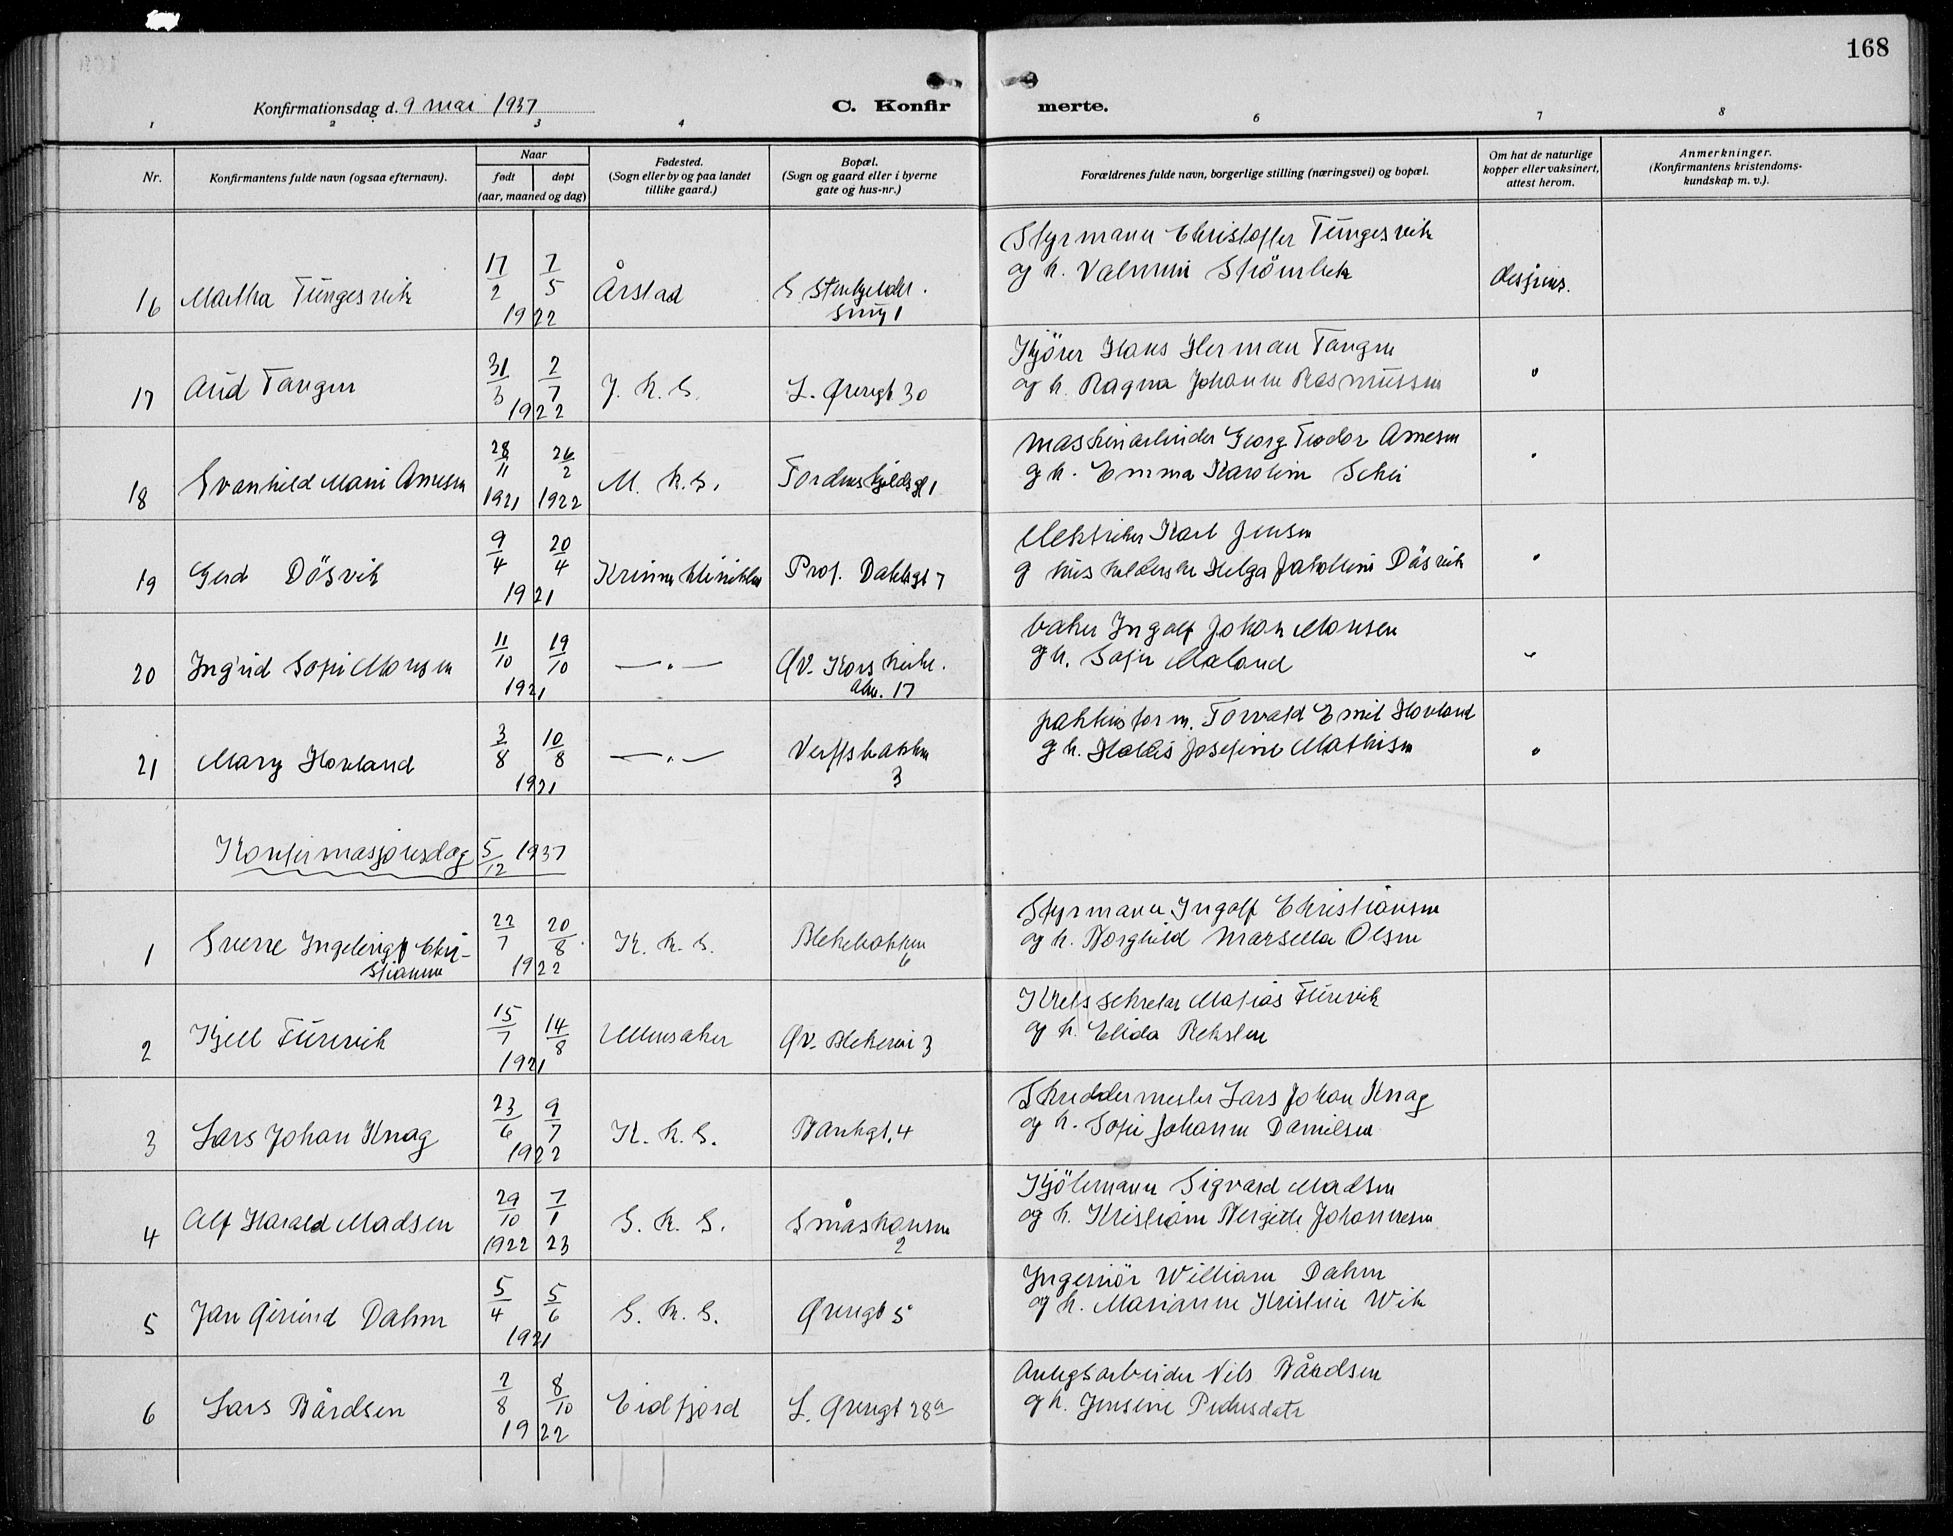 168
Konfirmationsdag d. 9 mai 1937
C. Konfirmerte.
1 2 3 4 6 7 8
Nr.
Konfirmantens fulde navn (ogsaa efternavn).
Naar
født døpt
(aar, maaned og dag)
Fødested.
(Sogn eller by og paa landet
tillike gaard.)
Bopæl.
(Sogn og gaard eller i byerne
gate og hus-nr.)
Forældrenes fulde navn, borgerlige stilling (næringsvei) og bopæl.
Om hat de naturlige
kopper eller vaksinert,
attest herom.
Anmerkninger.
(Konfirmantens kristendoms-
kundskap m. v.).
Styrmann Christoffer Tungesvik
16 Martha Tungesvik 17/2 7/5 1922 Årstad
og h.
17 Aud Tangen 31/3 2/7 1922 J. K. S. L. Øvregt 30
Hans Herman Tangen
og h. Ragna Johanne Rasmussen
18 Svanhild Marie Arnesen 28/11 1921 26/2 1922 M. K. S. Tordenskjoldsgt 1
Maskinarbeider Georg Teodor Arnesen
og h. Emma Karoline Schei
19 Gerd Dösvik 9/4 20/4 1921 Kvinneklinikken Prof. Dahlsgt 7
Elektriker Karl Jensen
og Helga Dösvik
20 Ingrid Sofie Monsen 11/10 19/10 1921 —"— Øv. Korskirke.
alm. 17
baker Ingolf Johan Monsen
og h. Sofie Maland
21 Mary Hovland 3/8 10/8 1921 —"— Verftsbakken
3
Torvald Emil Hovland
og h. Josefine Mathisen
Konfirmasjonsdag 5/12 1937
1 Sverre Ingolf Chri-
stiansen 22/7 20/8 1922 K. K. S. Blekebakken
6
Styrmann Ingolf Christiansen
og h. Borghild Marsella Olsen
2 Kjell Furevik 15/7 14/8 1921 Ullensaker Øv. Blekevei 3
Kretssekretær Matias Furevik
og h. Elida Reksten
3 Lars Johan Knag 23/6 9/7 1922 K. K. S. Bankgt. 4
Skreddermester Lars Johan Knag
og h. Sofie Johanne Danielsen
4 Alf Harald Madsen 29/10 1922 7/1 23 S. K. S. Småskansen
2
Sigvard Madsen
og h. Kristiane Bergitte Johannesen
5 Jan Øivind Dahm 5/4 5/6 1921 S. K. S. Øvregt 5
Ingeniör William Dahm
og h. Marianne Kristine Wik
6 Lars Bårdsen 2/8 8/10 1922 Eidfjord L. Øvregt 28a
Anlegsarbeider Nils Bårdsen
og h. Jensine Pedersdatr